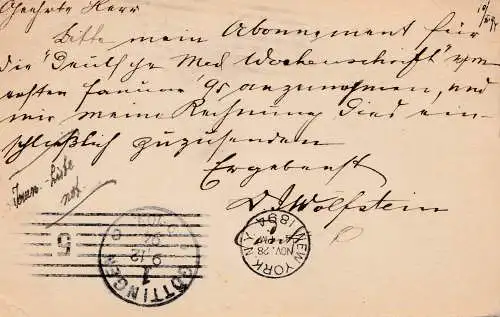 Geehrter Herr
Bitte mein Abonnement für
die "Deutsche Med Wochenschrift" vom
ersten Januar 95 anzunehmen, und
mir meine Rechnung dies ein-
schließlich zuzusenden
Ergebenst
D. Wolfstein
Journ. Liste
not
GÖTTINGEN
1
9.12
94
5
NEW YORK, N.Y.
NOV. 28
1894